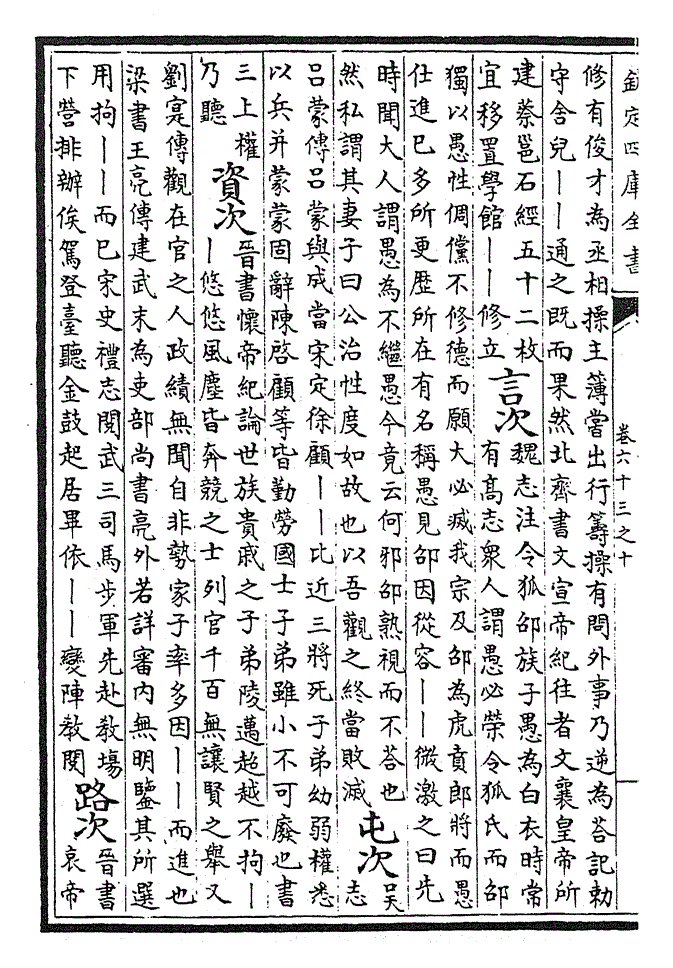 欽定四庫全書
卷六十三之十
修有俊才為丞相操主簿嘗出行籌操有問外事乃逆為荅記勅
守舍兒丨丨通之既而果然北齊書文宣帝紀往者文襄皇帝所
建蔡邕石經五十二枚
宜移置學館丨丨修立
言次
魏志注令狐邵族子愚為白衣時常
有髙志衆人謂愚必榮令狐氏而邵
獨以愚性倜儻不修德而願大必滅我宗及邵為虎賁郎將而愚
仕進已多所更歴所在有名稱愚見邵因從容丨丨微激之曰先
時聞大人謂愚為不繼愚今竟云何邪邵熟視而不荅也
然私謂其妻子曰公治性度如故也以吾觀之終當敗滅
屯次
吳
志
呂蒙傳呂蒙與成當宋定徐顧丨丨比近三將死子弟幼弱權悉
以兵并蒙蒙固辭陳啓顧等皆勤勞國士子弟雖小不可廢也書
三上權
乃聽
資次
晉書懷帝紀論世族貴戚之子弟陵邁超越不拘丨
丨悠悠風塵皆奔競之士列官千百無讓賢之舉又
劉寔傳觀在官之人政績無聞自非勢家子率多因丨丨而進也
梁書王亮傳建武末為吏部尚書亮外若詳審内無明鑒其所選
用拘丨丨而已宋史禮志閲武三司馬步軍先赴教塲
下營排辦俟駕登臺聽金鼓起居畢依丨丨變陣教閲
路次
晉書
哀帝